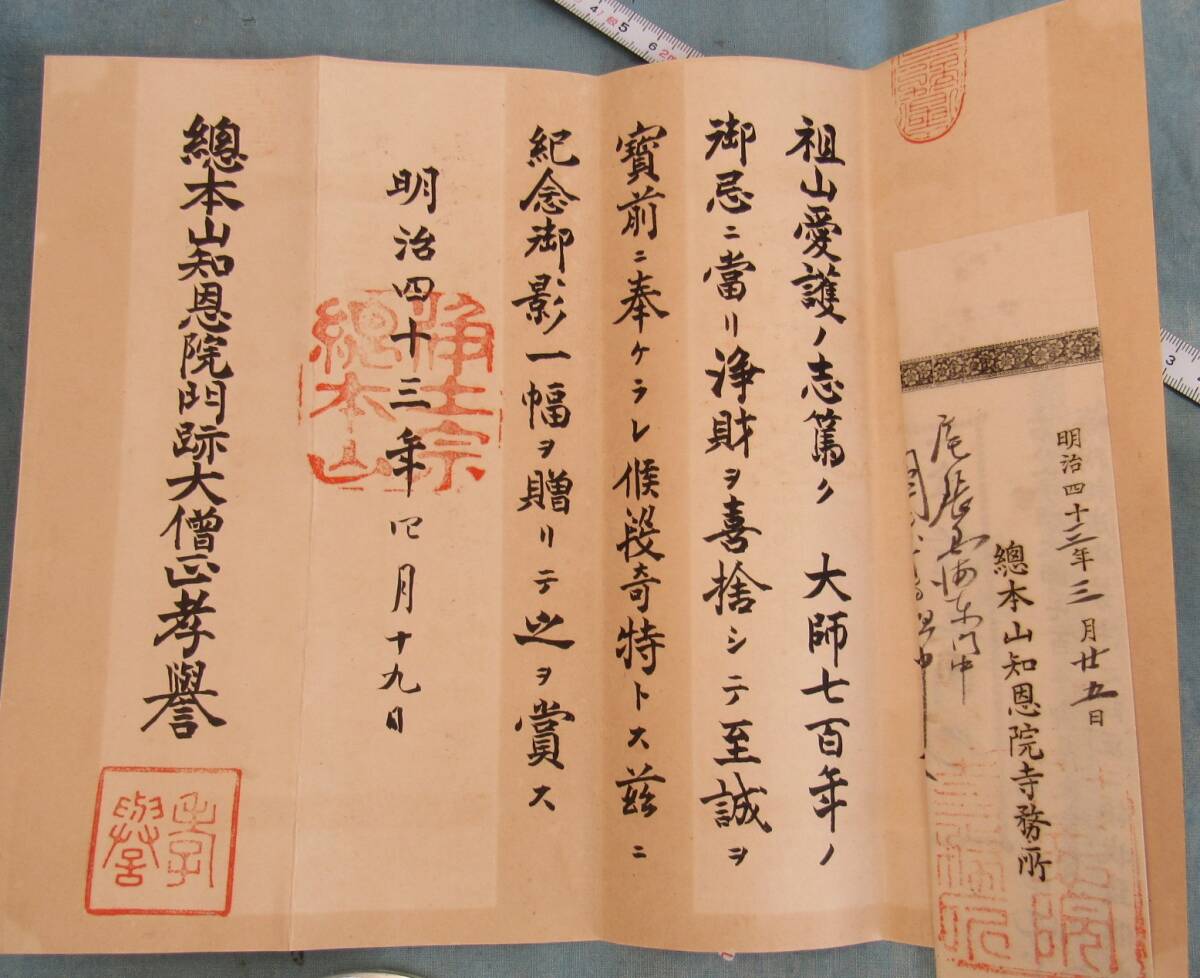 祖山愛護ノ志篤ク　大師七百年ノ
御忌ニ當リ浄財ヲ喜捨シテ至誠ヲ
寳前ニ奉ケラレ候段奇特トス茲ニ
紀念御影一幅ヲ贈リテ之ヲ賞ス
明治四十三年四月十九日
總本山知恩院門跡大僧正孝譽
浄土宗
總本山
孝
譽
明治四十三年三月廿五日
總本山知恩院寺務所
4
5
6
3